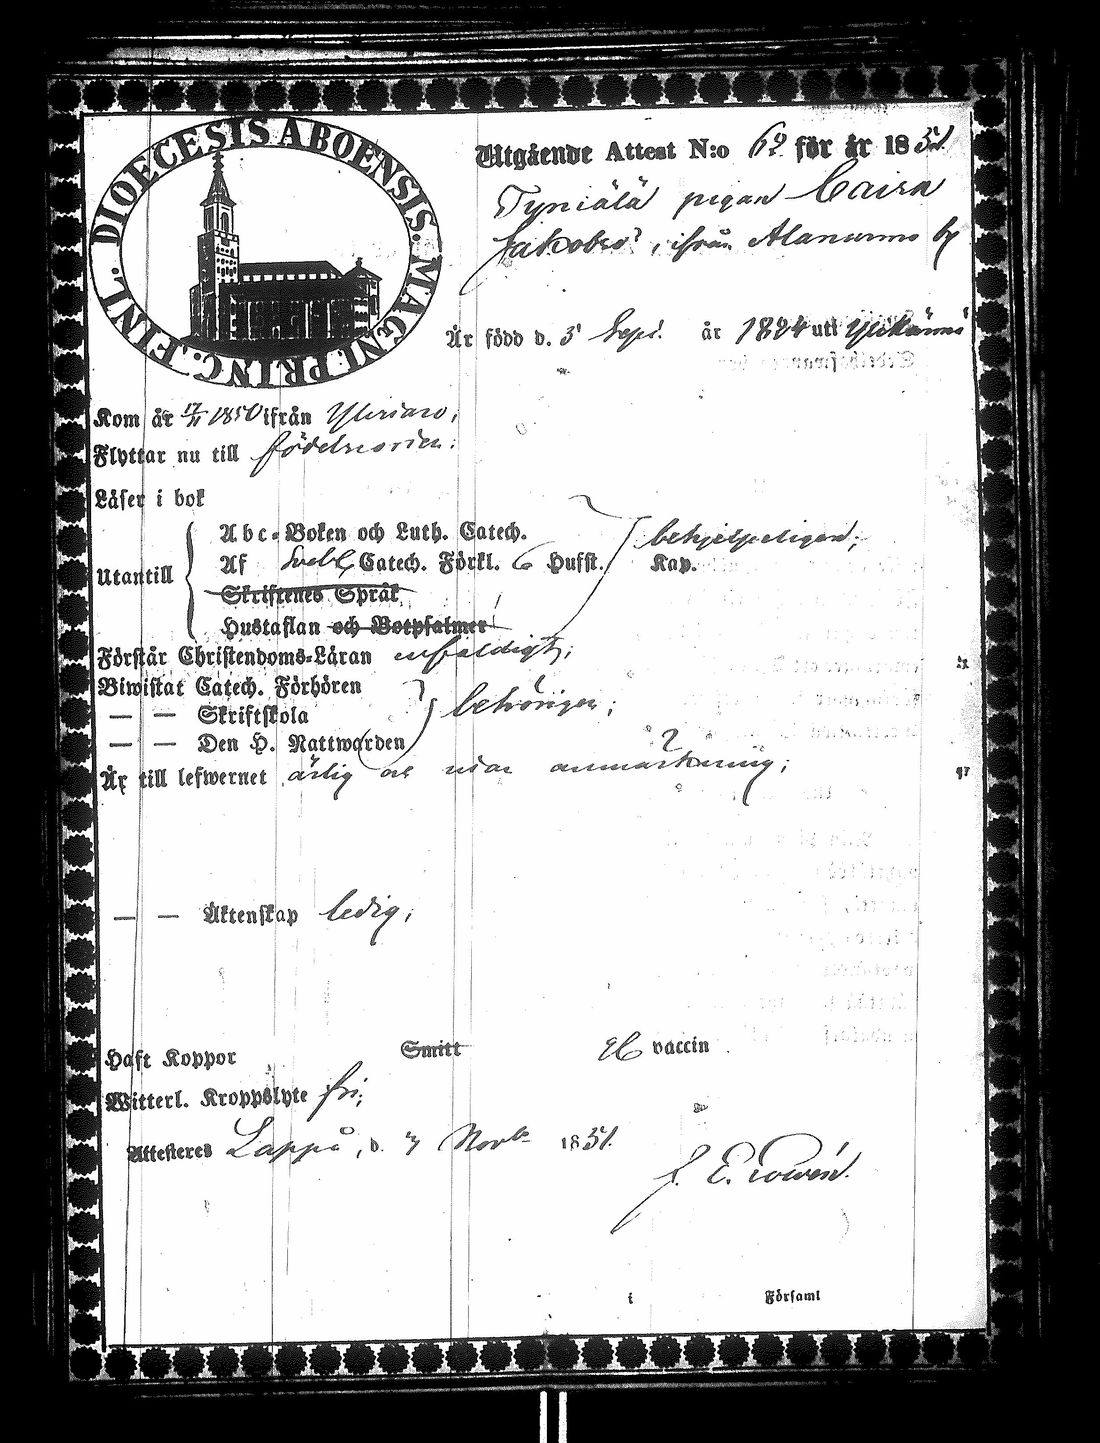 DIOECESIS ABOENSIS. MAGNI PRINC. FINL.
Utgående Attest N:o 62 för år 1851.
pigan Caisa
Jakobs, ifrån by
Är född d. 5 Sept. år 1824 uti
Kom år 17/11 1850 ifrån
Flyttar nu till födelseorten.
Läser i bok
Abc-Boken och Luth. Catech.
behjelpeligen;
Utantill
Af Svebel. Catech. Förkl. 6 Hufst. Kap.
Skriftenes Språk
Hustaflan och Botpsalmer
Förstår Christendoms-Läran enfaldigt;
Biwistat Catech. Förhören
— — Skriftskola
behörigen;
— — Den H. Nattwarden
Är till lefwernet ärlig och utan anmärkning;
— — Äktenskap ledig;
Haft Koppor Smitt vaccin
Witterl. Kroppslyte fri;
Attesteres Lappo, d. 7 Novbr 1851.
J. E.
i Församl